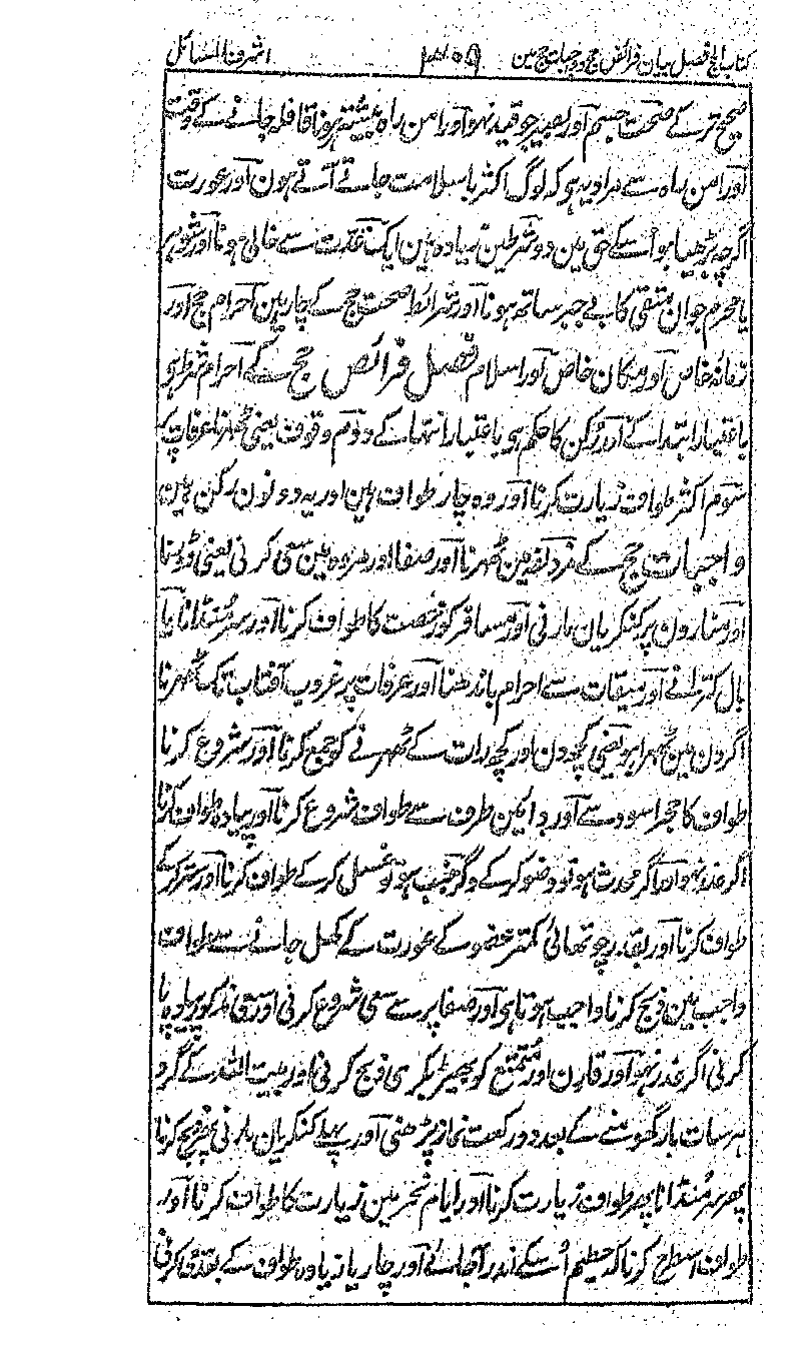 کتاب الحج فصل بیان فرائض حج و واجبات حج مین ۳۵۹ اشرف المسائل
صحیح تر کے صحت جسم آور بصیر جو قید نہو آور امن راہ بیشتر ہونا قافلہ جانے کے وقت
آور امن راہ سے مراد یہ ہی کہ لوگ اکثر باسلامت جاتے آتے ہون آور عورت
اگرچہ بڑھیا ہو اُسکے حق مین دو شرطین زیادہ ہین ایک عدت سے خالی ہونا آور شوہر
یا محرم جوان متقی کا بے جبر ساتھ ہونا آور شرائط صحت حج کے چار ہین احرام حج آور
زمانہ خاص آور مکان خاص آور اسلام فصل فرائض حج کے احرام شرط ہی
باعتبار ابتدا کے آور رکن کا حکم ہی باعتبار انتہا کے دوم وقوف یعنی ٹھہرنا عرفات پر
سوم اکثر طواف زیارت کرنا آور وہ چار طواف ہین اور یہ دونون رکن ہین
واجبات حج کے مزدلفہ مین ٹھہرنا آور صفا اور مروہ مین سعی کرنی یعنی دوڑنا
آور منارون پر کنکریان مارنی آور مسافر کو رخصت کا طواف کرنا آور سر مُنڈانا یا
بال کترانے آور میقات سے احرام باندھنا آور عرفات پر غروب آفتاب تک ٹھہرنا
اگر دن مین ٹھہرا ہو یعنی کچھ دن اور کچھ رات کے ٹھہرنے کو جمع کرنا آور شروع کرنا
طواف کا حجر اسود سے آور داہین طرف سے طواف شروع کرنا آور پیادہ طواف کرنا
اگر عذر نہو اور اگر محدث ہو تو وضو کرکے وگر جنب ہو تو غسل کرکے طواف کرنا آور ستر کرکے
طواف کرنا آور بقدر چوتھائی کمتر عضو کے عورت کے کھل جانے سے طواف
واجب مین ذبح کرنا واجب ہوتا ہی آور صفا پر سے سعی شروع کرنی آور سعی مذکور پیادہ پا
کرنی اگر عذر نہو آور قارن اور مُتمتع کو بھیڑ بکری ذبح کرنی آور بیت اللہ کے گرد
ہر سات بار گھومنے کے بعد دو رکعت نماز پڑھنی آور پہلے کنکریان مارنی پھر ذبح کرنا
پھر سر مُنڈانا پھر طواف زیارت کرنا آور ایام نحر مین زیارت کا طواف کرنا آور
طواف اسطرح کرنا کہ حطیم اُسکے اندر آجائے آور چار یا زیادہ طواف کے بعد سعی کرنی